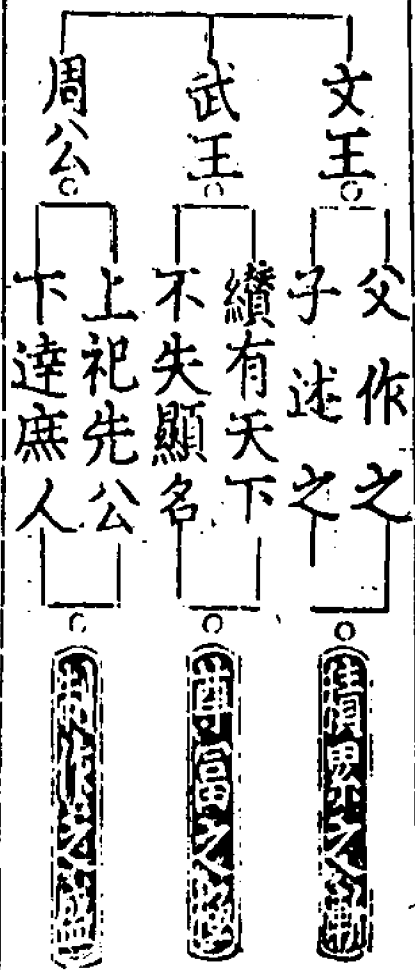 文王
父作之
子述之
積累之勤
武王
纘有天下
不失顯名
尊富之極
周公
上祀先公
下達庶人
制作之盛